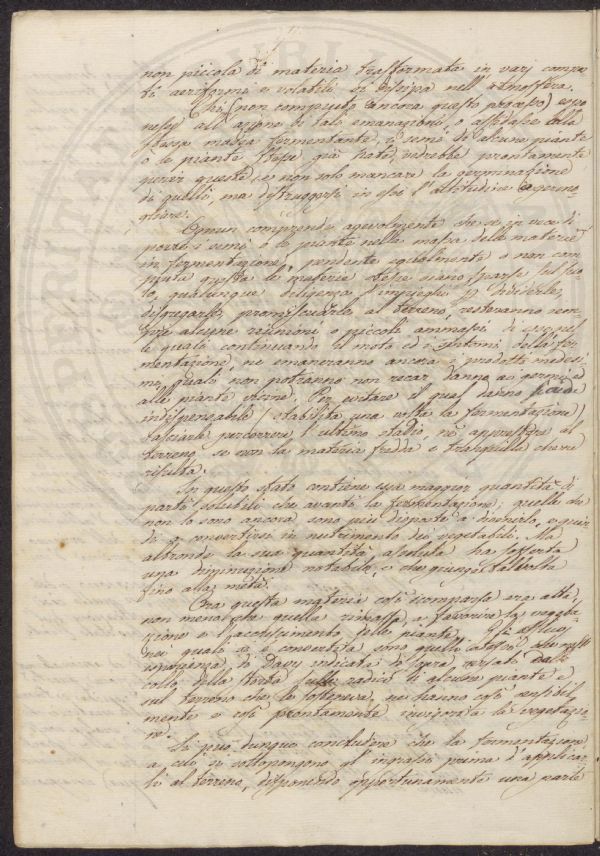 non piccola di materia trasformata in varj compo
ti aeriformi e volatili si dissipa nell'atmosfera.
Chi (non compiuto ancora questo processo) espo
nesse all'azione di tali emanazioni, o affidasse alla
stessa massa fermentante, i semi di alcune piante
o le piante stesse già nate, vedrebbe prontamente
perir queste, e non solo mancare la germinazione
di quelli, ma distruggersi in essi l'attitudine a germo
gliare.
Ognun comprende agevolmente che se in vece di
porre i semi o le piante nella massa della materia
in fermentazione, pendente egualmente o non com
piuta questa le materie stesse siano sparse sul suo
lo, qualunque diligenza s'impieghi per dividerle,
disgregarle, promiscuarle al terreno, resteranno sem
pre alcune riunioni o piccole ammassi di esse nel
le quali continuando il moto ed i sintomi della fer
mentazione, ne emaneranno ancora i prodotti medesi
mi, quali non potranno non recar danno ai germi e
alle piante vicine. Per evitare il qual danno
indispensabile (stabilita una volta la fermentazione)
lasciarle percorrere l'ultimo stadio, nè apprestare al
terreno se non la materia fredda e tranquilla che ne
risulta.
In questo stato contiene una maggior quantità di
parti solubili che avanti la fermentazione; quelle che
non lo sono ancora sono più disposte a divenirlo, e quin
di a convertirsi in nutrimento dei vegetabili. Ma
altronde la sua quantità assoluta ha sofferta
una diminuzione notabile, e che giunge talvolta
fino alla metà.
Ora questa materia così scomparsa era atta
non meno che quella rimasta a favorire la vegeta
zione e l'accrescimento delle piante.
nei quali si è convertita sono quelli stessi che nell'
esperienza di Davy indicata di sopra versati dal
collo della storta sulle radici di alcune piante e
sul terreno che le sosteneva, ne hanno così sensibil
mente e così prontamente invigorata la vegetazio
ne.
Si può dunque concludere che la fermentazione
a cui si sottopongono gl'ingrassi prima d'applicar
li al terreno, disponendo opportunamente una parte